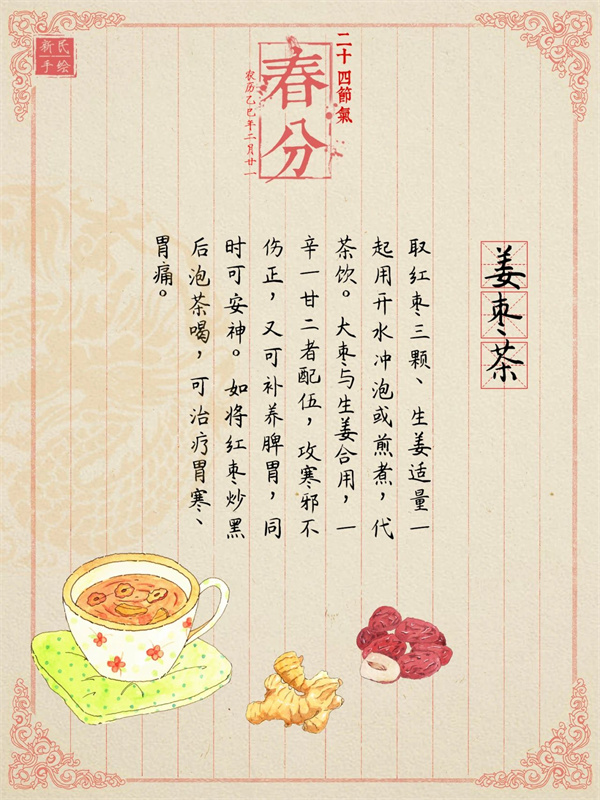 新氏
手绘
二十四節氣
春分
农历乙巳年二月廿一
姜枣茶
取红枣三颗、生姜适量一
起用开水冲泡或煎煮，代
茶饮。大枣与生姜合用，一
辛一甘二者配伍，攻寒邪不
伤正，又可补养脾胃，同
时可安神。如将红枣炒黑
后泡茶喝，可治疗胃寒、
胃痛。